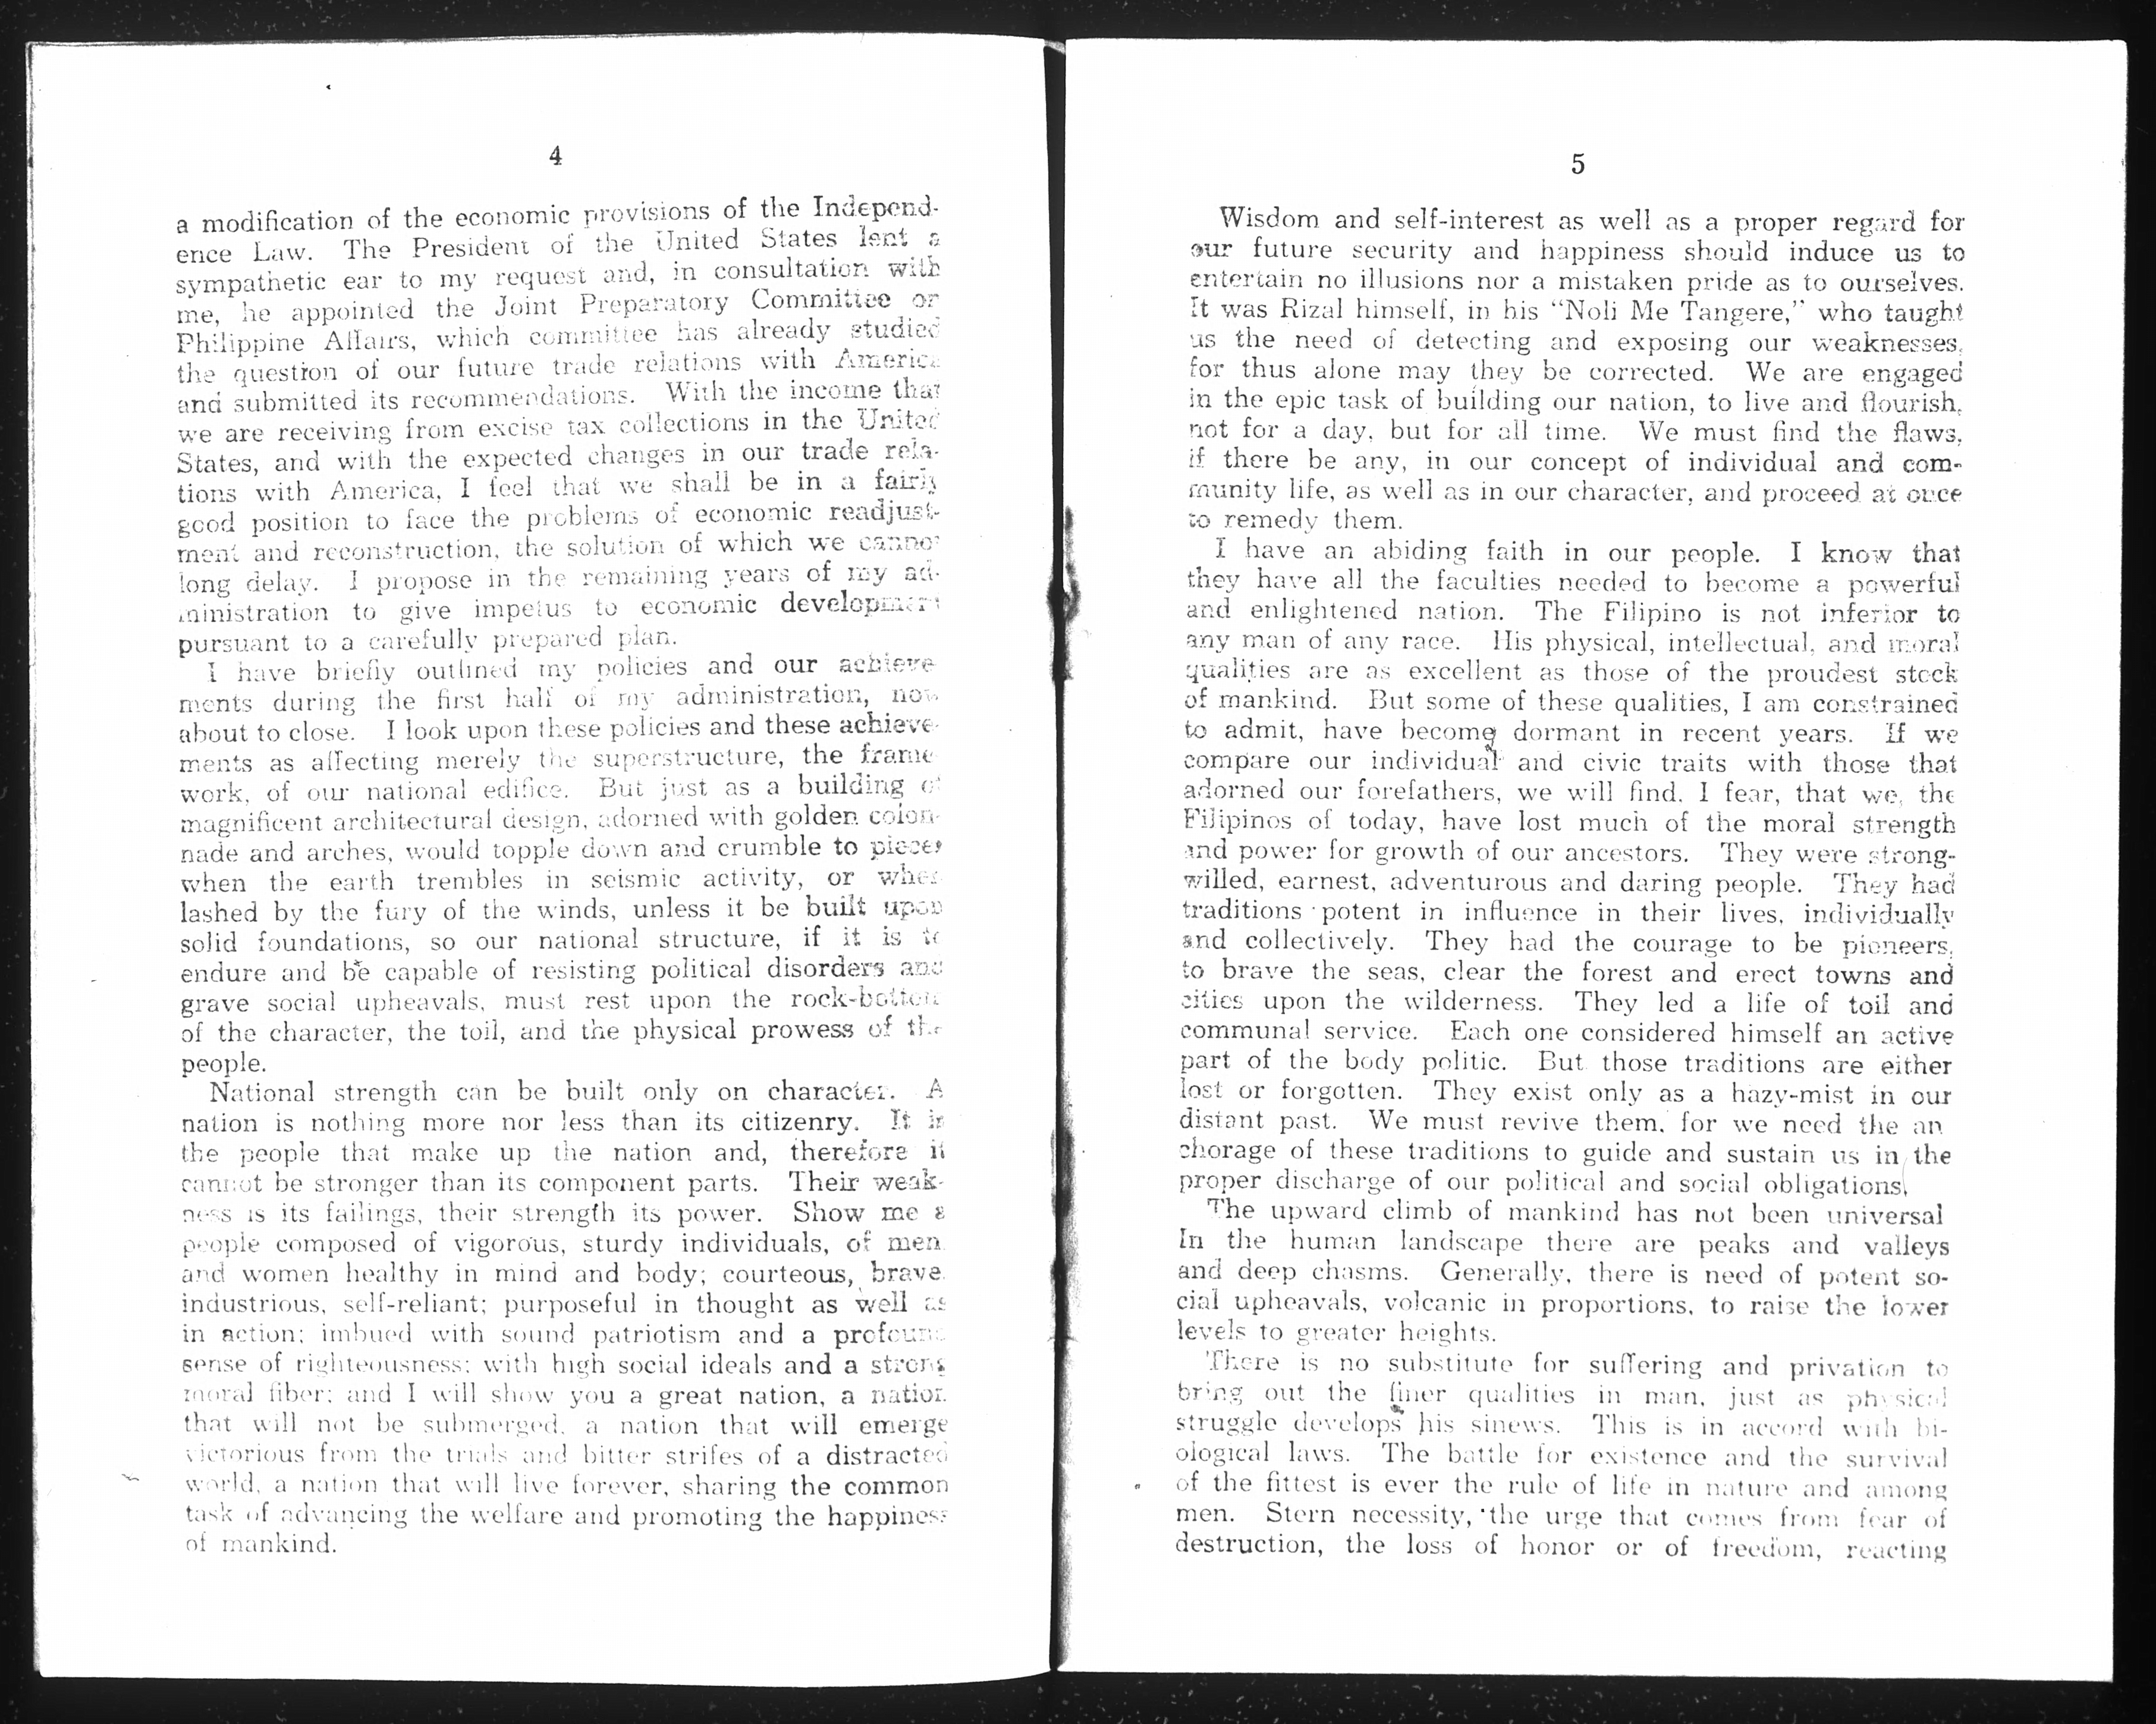 4
a modification of the economic provisions of the Independ-
ence Law. The President of the United States lent a
sympathetic ear to my request and, in consultation with
me, he appointed the Joint Preparatory Committee on
Philippine Affairs, which committee has already studied
the question of our future trade relations with America
and submitted its recommendations. With the income that
we are receiving from excise tax collections in the United
States, and with the expected changes in our trade rela-
tions with America, I feel that we shall be in a fairly
good position to face the problems of economic readjust-
ment and reconstruction, the solution of which we cannot
long delay. I propose in the remaining years of my ad-
ministration to give impetus to economic development
pursuant to a carefully prepared plan.
I have briefly outlined my policies and our achieve-
ments during the first half of my administration, now
about to close. I look upon these policies and these achieve-
ments as affecting merely the superstructure, the frame-
work, of our national edifice. But just as a building of
magnificent architectural design, adorned with golden colon-
nade and arches, would topple down and crumble to pieces
when the earth trembles in seismic activity, or when
lashed by the fury of the winds, unless it be built upon
solid foundations, so our national structure, if it is to
endure and be capable of resisting political disorders and
grave social upheavals, must rest upon the rock-bottom
of the character, the toil, and the physical prowess of the
people.
National strength can be built only on character. A
nation is nothing more nor less than its citizenry. It is
the people that make up the nation and, therefore it
cannot be stronger than its component parts. Their weak-
ness is its failings, their strength its power. Show me a
people composed of vigorous, sturdy individuals, of men
and women healthy in mind and body; courteous, brave,
industrious, self-reliant; purposeful in thought as well as
in action; imbued with sound patriotism and a profound
sense of righteousness; with high social ideals and a strong
moral fiber; and I will show you a great nation, a nation
that will not be submerged, a nation that will emerge
victorious from the trials and bitter strifes of a distracted
world, a nation that will live forever, sharing the common
task of advancing the welfare and promoting the happiness
of mankind.
5
Wisdom and self-interest as well as a proper regard for
our future security and happiness should induce us to
entertain no illusions nor a mistaken pride as to ourselves.
It was Rizal himself, in his "Noli Me Tangere," who taught
us the need of detecting and exposing our weaknesses,
for thus alone may they be corrected. We are engaged
in the epic task of building our nation, to live and flourish,
not for a day, but for all time. We must find the flaws,
if there be any, in our concept of individual and com-
munity life, as well as in our character, and proceed at once
to remedy them.
I have an abiding faith in our people. I know that
they have all the faculties needed to become a powerful
and enlightened nation. The Filipino is not inferior to
any man of any race. His physical, intellectual, and moral
qualities are as excellent as those of the proudest stock
of mankind. But some of these qualities, I am constrained
to admit, have become dormant in recent years. If we
compare our individual and civic traits with those that
adorned our forefathers, we will find, I fear, that we, the
Filipinos of today, have lost much of the moral strength
and power for growth of our ancestors. They were strong-
willed, earnest, adventurous and daring people. They had
traditions potent in influence in their lives, individually
and collectively. They had the courage to be pioneers,
to brave the seas, clear the forest and erect towns and
cities upon the wilderness. They led a life of toil and
communal service. Each one considered himself an active
part of the body politic. But those traditions are either
lost or forgotten. They exist only as a hazy-mist in our
distant past. We must revive them, for we need the an
chorage of these traditions to guide and sustain us in the
proper discharge of our political and social obligations.
The upward climb of mankind has not been universal
In the human landscape there are peaks and valleys
and deep chasms. Generally, there is need of potent so-
cial upheavals, volcanic in proportions, to raise the lower
levels to greater heights.
There is no substitute for suffering and privation to
bring out the finer qualities in man, just as physical
struggle develops his sinews. This is in accord with bi-
ological laws. The battle for existence and the survival
of the fittest is ever the rule of life in nature and among
men. Stern necessity, the urge that comes from fear of
destruction, the loss of honor or of freedom, reacting